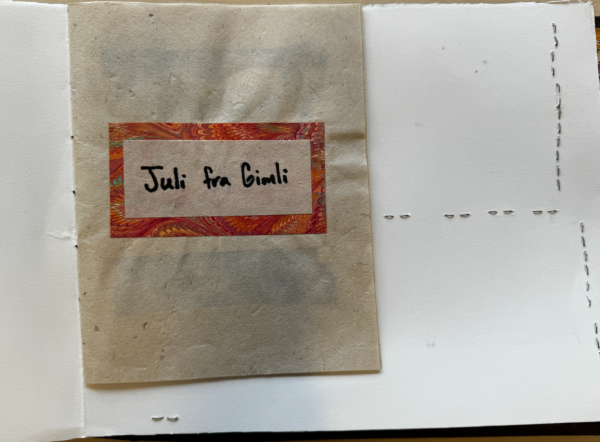 Juli fra Gimli